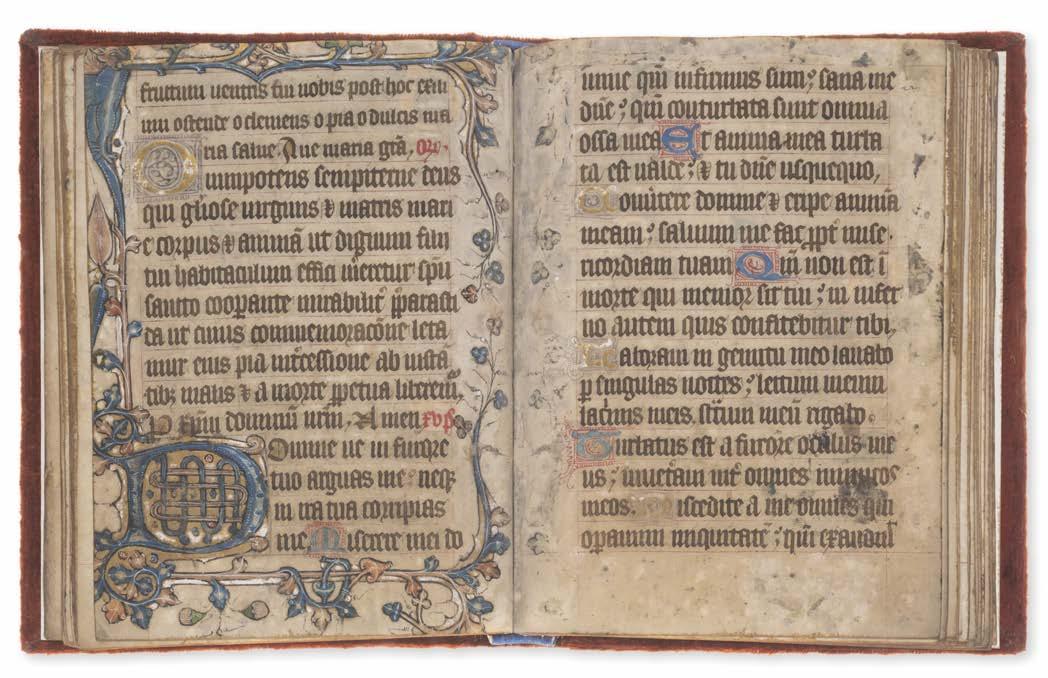 fructum ventris tui nobis post hoc exili
um ostende o clemens o pia o dulcis ma
ria salve. Ave maria grā, oro.
Omnipotens sempiterne deus
qui gl'iose virginis & matris mari
e corpus & animā ut dignum filii
tui habitaculum effici m̄eretur sp̄u
sancto cooperante mirabilit' p̄parasti
da ut cuius commemoracōne leta
mur eius pia int'cessione ab insta
tib; malis & a morte ꝑpetua liberem̄
ꝑ xp̄m dominū nr̄m, Amen
Domine ne in furore
tuo arguas me neq;
in ira tua corripias
me. Miserere mei do
mine qm̄ infirmus sum; sana me
dn̄e; qm̄ conturbata sunt omnia
ossa mea Et anima mea turba
ta est valde; & tu dn̄e usquequo,
Convertere domine & eripe animā
meam; salvum me fac ꝓpt' mise
ricordiam tuam Qm̄ non est i
morte qui memor sit tui; in infer
no autem quis confitebitur tibi,
Laboravi in gemitu meo lavabo
ꝑ singulas noctes; lectum meum
lac'mis meis st'tum meū rigabo.
Turbatus est a furore oculus me
us; invet'avi int' omnes inimicos
meos. Discedite a me omnes qui
oꝑamini iniquitatē; qm̄ exaudi